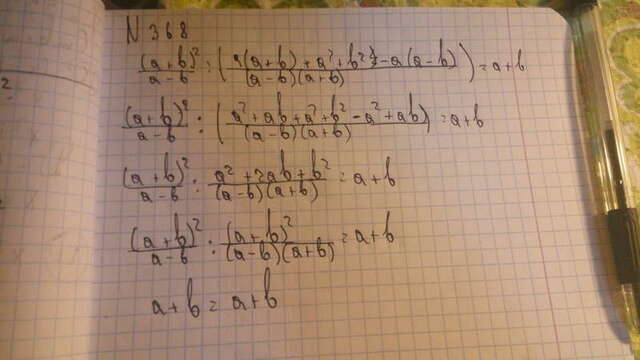 N 368
(a+b)²/(a-b) : (a(a+b)+a²+b²-a(a-b)/(a-b)(a+b)) = a+b
(a+b)²/(a-b) : (a²+ab+a²+b²-a²+ab/(a-b)(a+b)) = a+b
(a+b)²/(a-b) : a²+2ab+b²/(a-b)(a+b) = a+b
(a+b)²/(a-b) : (a+b)²/(a-b)(a+b) = a+b
a+b = a+b